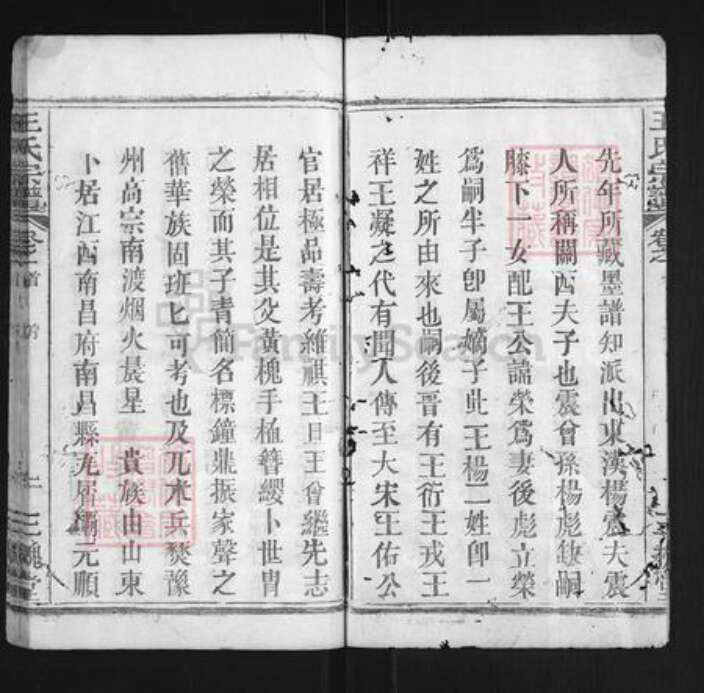 先年所藏墨譜知派出東漢楊震夫震
人所稱關西夫子也震曾孫楊彪缺嗣
膝下一女配王公諱榮為妻後彪立榮
為嗣半子卽屬嫡子此王楊二姓卽一
姓之所由來也嗣後晋有王衍王戎王
祥王凝之代有聞人傳至大宋王佑公
官居極品壽考維祺王旦王曾繼先志
居相位是其父黃槐手植簪纓卜世胄
之榮而其子青簡名標鐘鼎振家聲之
舊華族固班匕可考也及兀朮兵燹豫
州高宗南渡烟火晨星 貴族由山東
卜居江西南昌府南昌縣 元順
王氏宗譜
卷之首
三槐堂
王氏宗譜
卷之
FamilySearch